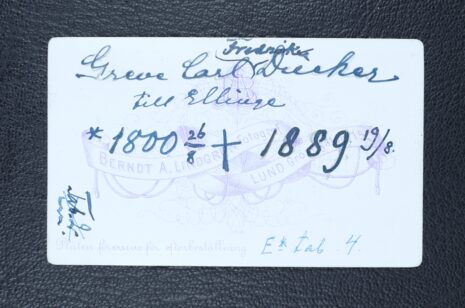 Fredrik
Greve Carl Ducker
till Ellinge
* 1800 26/8 + 1889 19/8.
BERNDT A. LINDGREN
LUND
Plåten förvaras för efterbeställning
E* tab. 4.